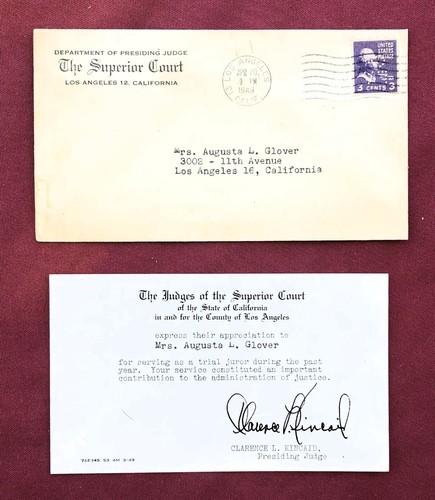 DEPARTMENT OF PRESIDING JUDGE
The Superior Court
LOS ANGELES 12, CALIFORNIA
LOS ANGELES
APR
3 PM
1949
CALIF.
UNITED
STATES
POSTAGE
3 CENTS 3
Mrs. Augusta L. Glover
3002 - 11th Avenue
Los Angeles 16, California
The Judges of the Superior Court
of the State of California
in and for the County of Los Angeles
express their appreciation to
Mrs. Augusta L. Glover
for serving as a trial juror during the past
year. Your service constituted an important
contribution to the administration of justice.
Clarence L. Kincaid
CLARENCE L. KINCAID,
Presiding Judge